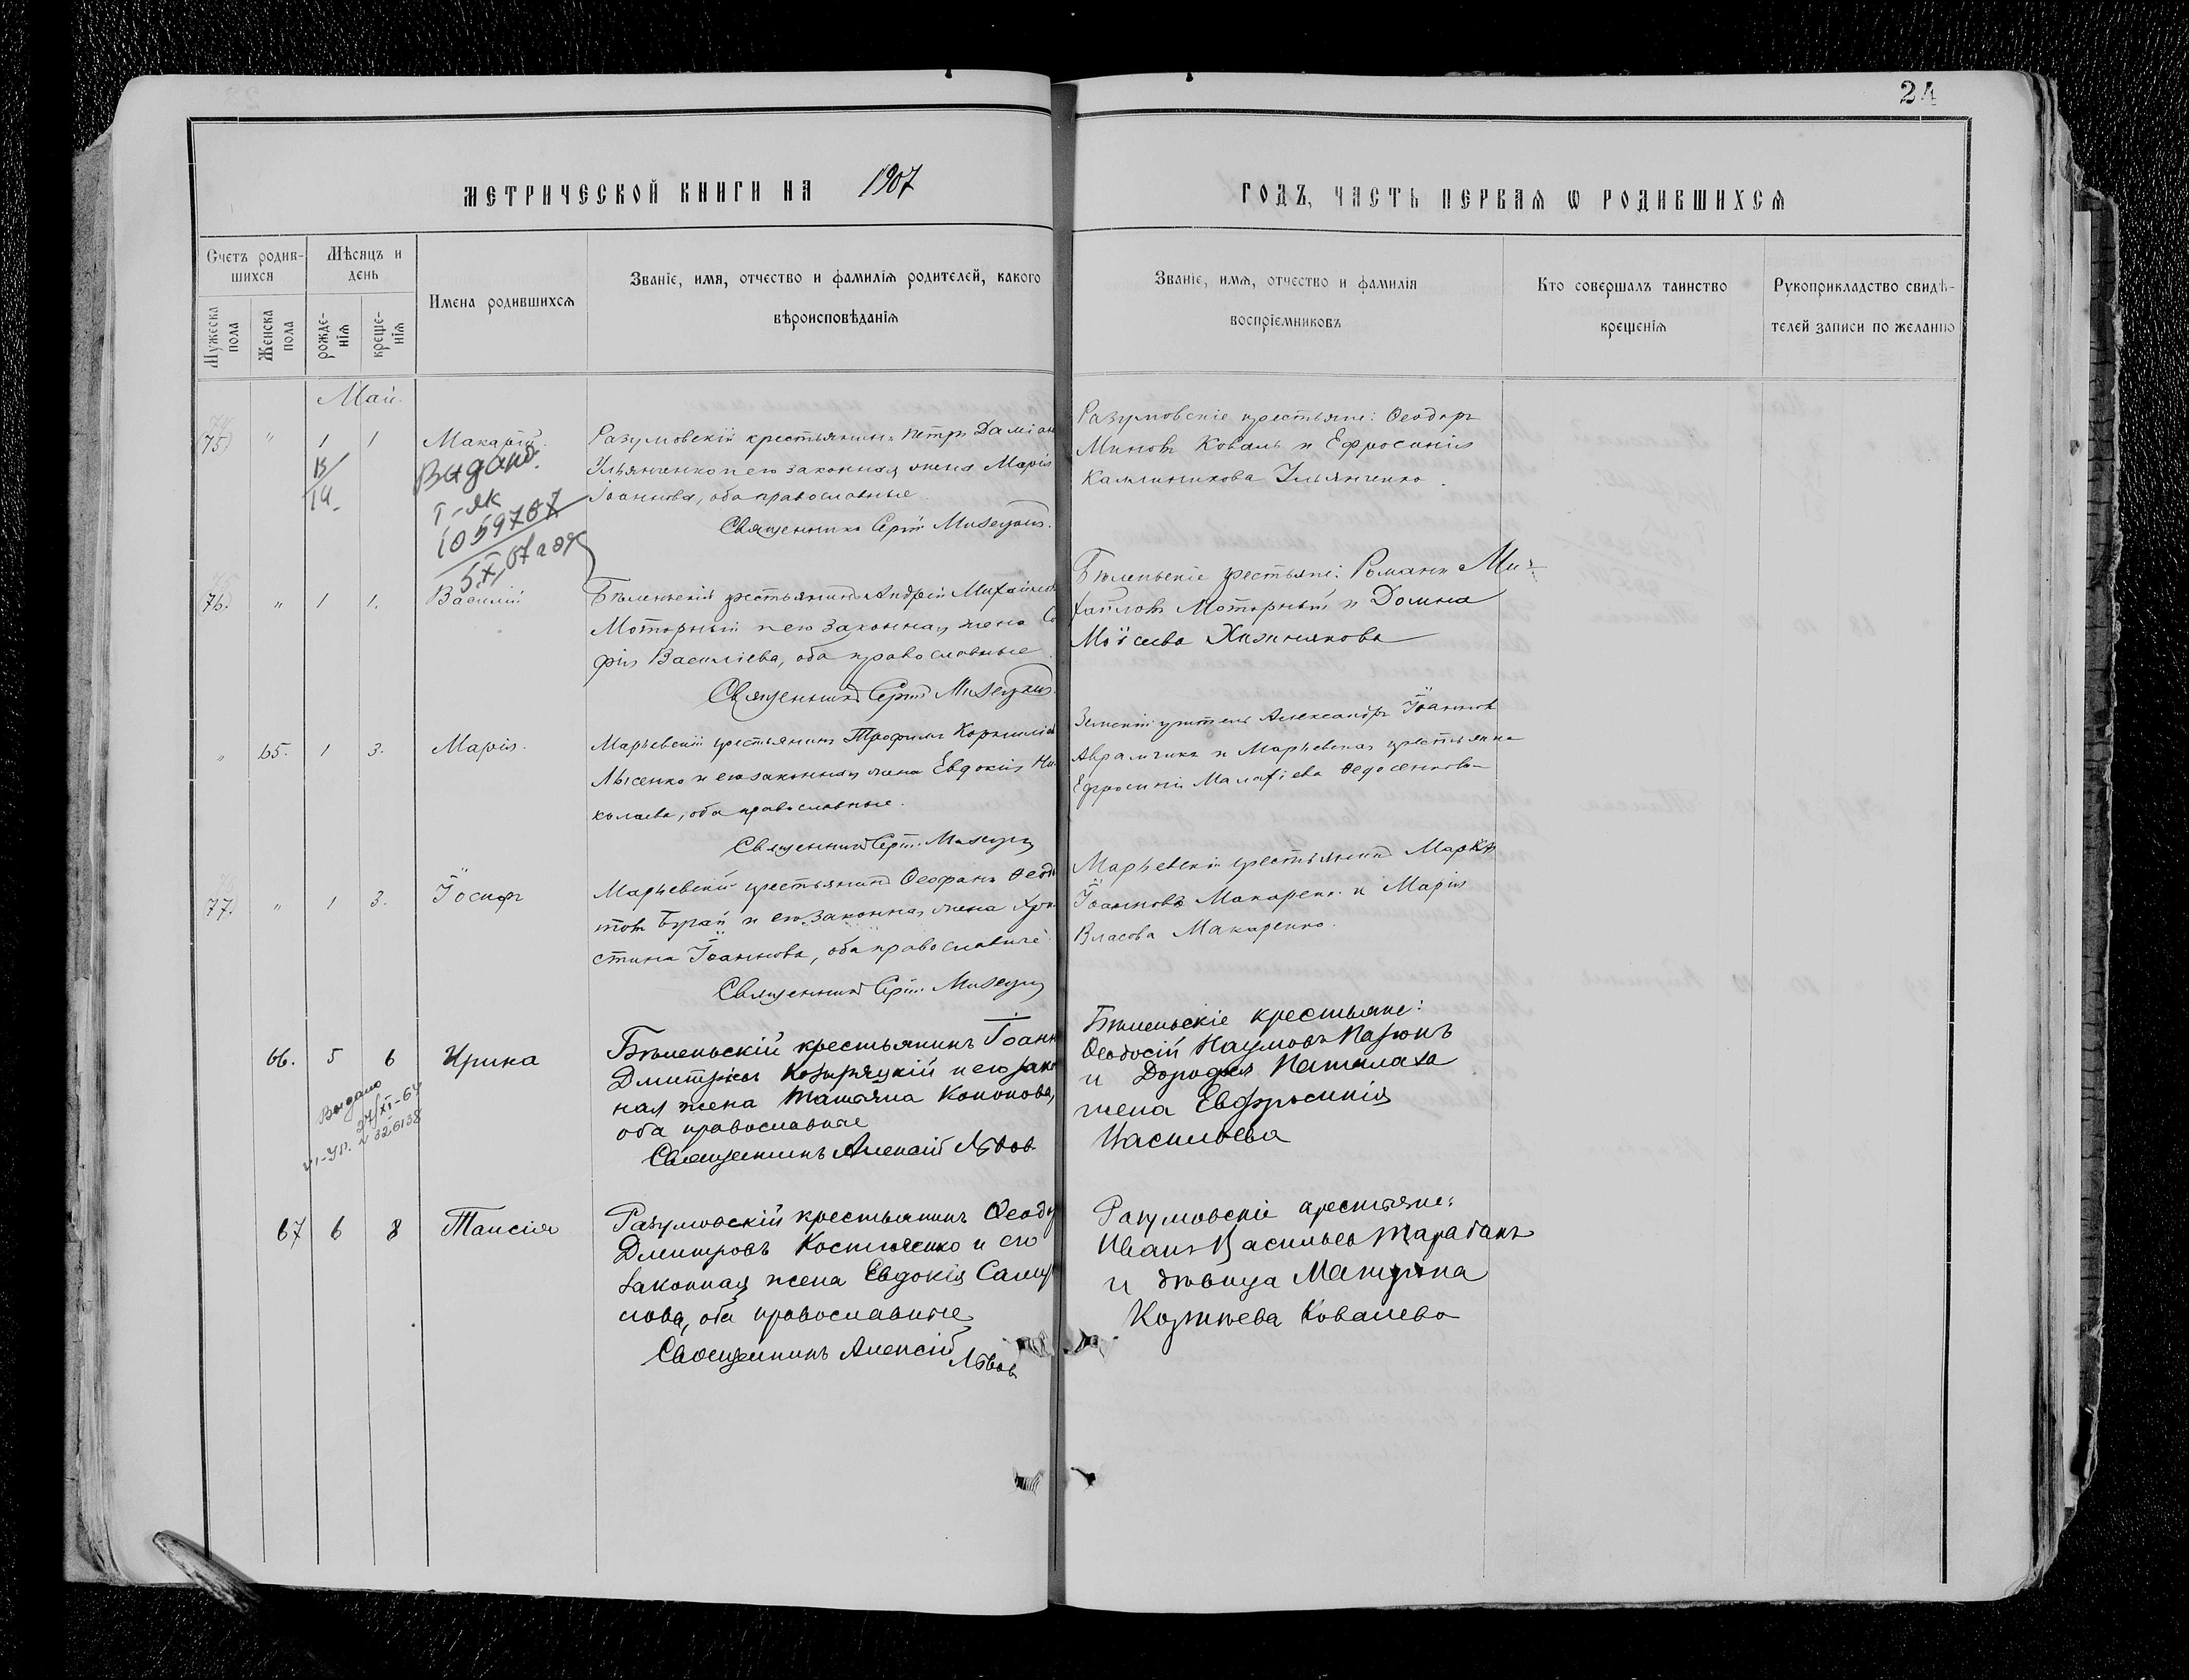 24
МЕТРИЧЕСКОЙ КНИГИ НА 1907
ГОДЪ, ЧАСТЬ ПЕРВАЯ Ѡ РОДИВШИХСЯ
Счетъ родив-
шихся
Мужеска
пола
Женска
пола
Мѣсяцъ и
день
рожде-
нія
креще-
нія
Имена родившихся
Званіе, имя, отчество и фамилія родителей, какого
вѣроисповѣданія
Званіе, имя, отчество и фамилія
воспріемниковъ
Кто совершалъ таинство
крещенія
Рукоприкладство свидѣ-
телей записи по желанію
Май.
75) " 1 1 Макарій.
Видано
I-ЯК
1059707
Разумовскій крестьянинъ Петръ Даміан
Ильянченко и его законная жена Марія
Іоаннова, оба православные.
Священникъ
Разумовскіе крестьяне: Ѳеодоръ
Миновъ Коваль и Ефросинія
Калинникова Ильянченко.
76. " 1 1. Василій
Бѣленьскій крестьянинъ Андрей Михайлов
Моторный и его законная жена Со
фія Василіева, оба православные.
Священникъ
Бѣленьскіе крестьяне: Романъ Ми-
хайловъ Моторный и Домна
Моѵсеева Хижнякова
" 65. 1 3. Марія.
Марьевскій крестьянинъ Трофимъ Корниліев
Лысенко и его законная жена Евдокія Ни-
колаева, оба православные.
Священникъ
Земскій учитель Александръ Іоанновъ
Аврамчикъ и Марьевская крестьянка
Ефросинія Малафіева Ѳедосенкова
77. " 1 3. Іосифъ
Марьевскій крестьянинъ Ѳеофанъ
товъ Бугай и его законная жена Хри-
стина Іоаннова, оба православные.
Священникъ
Марьевскій крестьянинъ Маркъ
Іоанновъ Макаренко и Марія
Власова Макаренко.
66. 5 6 Ирина
Выдано
27/XI-64
VI-УР. N 326138
Бѣленьскій крестьянинъ Іоанн
Дмитріевъ Козыряцкій и его закон
ная жена Татьяна Кононова,
оба православные
Священникъ Алексій Львов
Бѣленьскіе крестьяне:
Ѳеодосій Наумовъ
и
жена Евфросинія
Васильева
67 6 8 Таисія
Разумовскій крестьянинъ Ѳеодо
Дмитровъ Костюченко и его
законная жена Евдокія Самуи
лова, оба православные
Священникъ Алексій Львов
Разумовскіе крестьяне:
Иванъ Васильев Таратанъ
и дѣвица Матрона
Ковалева